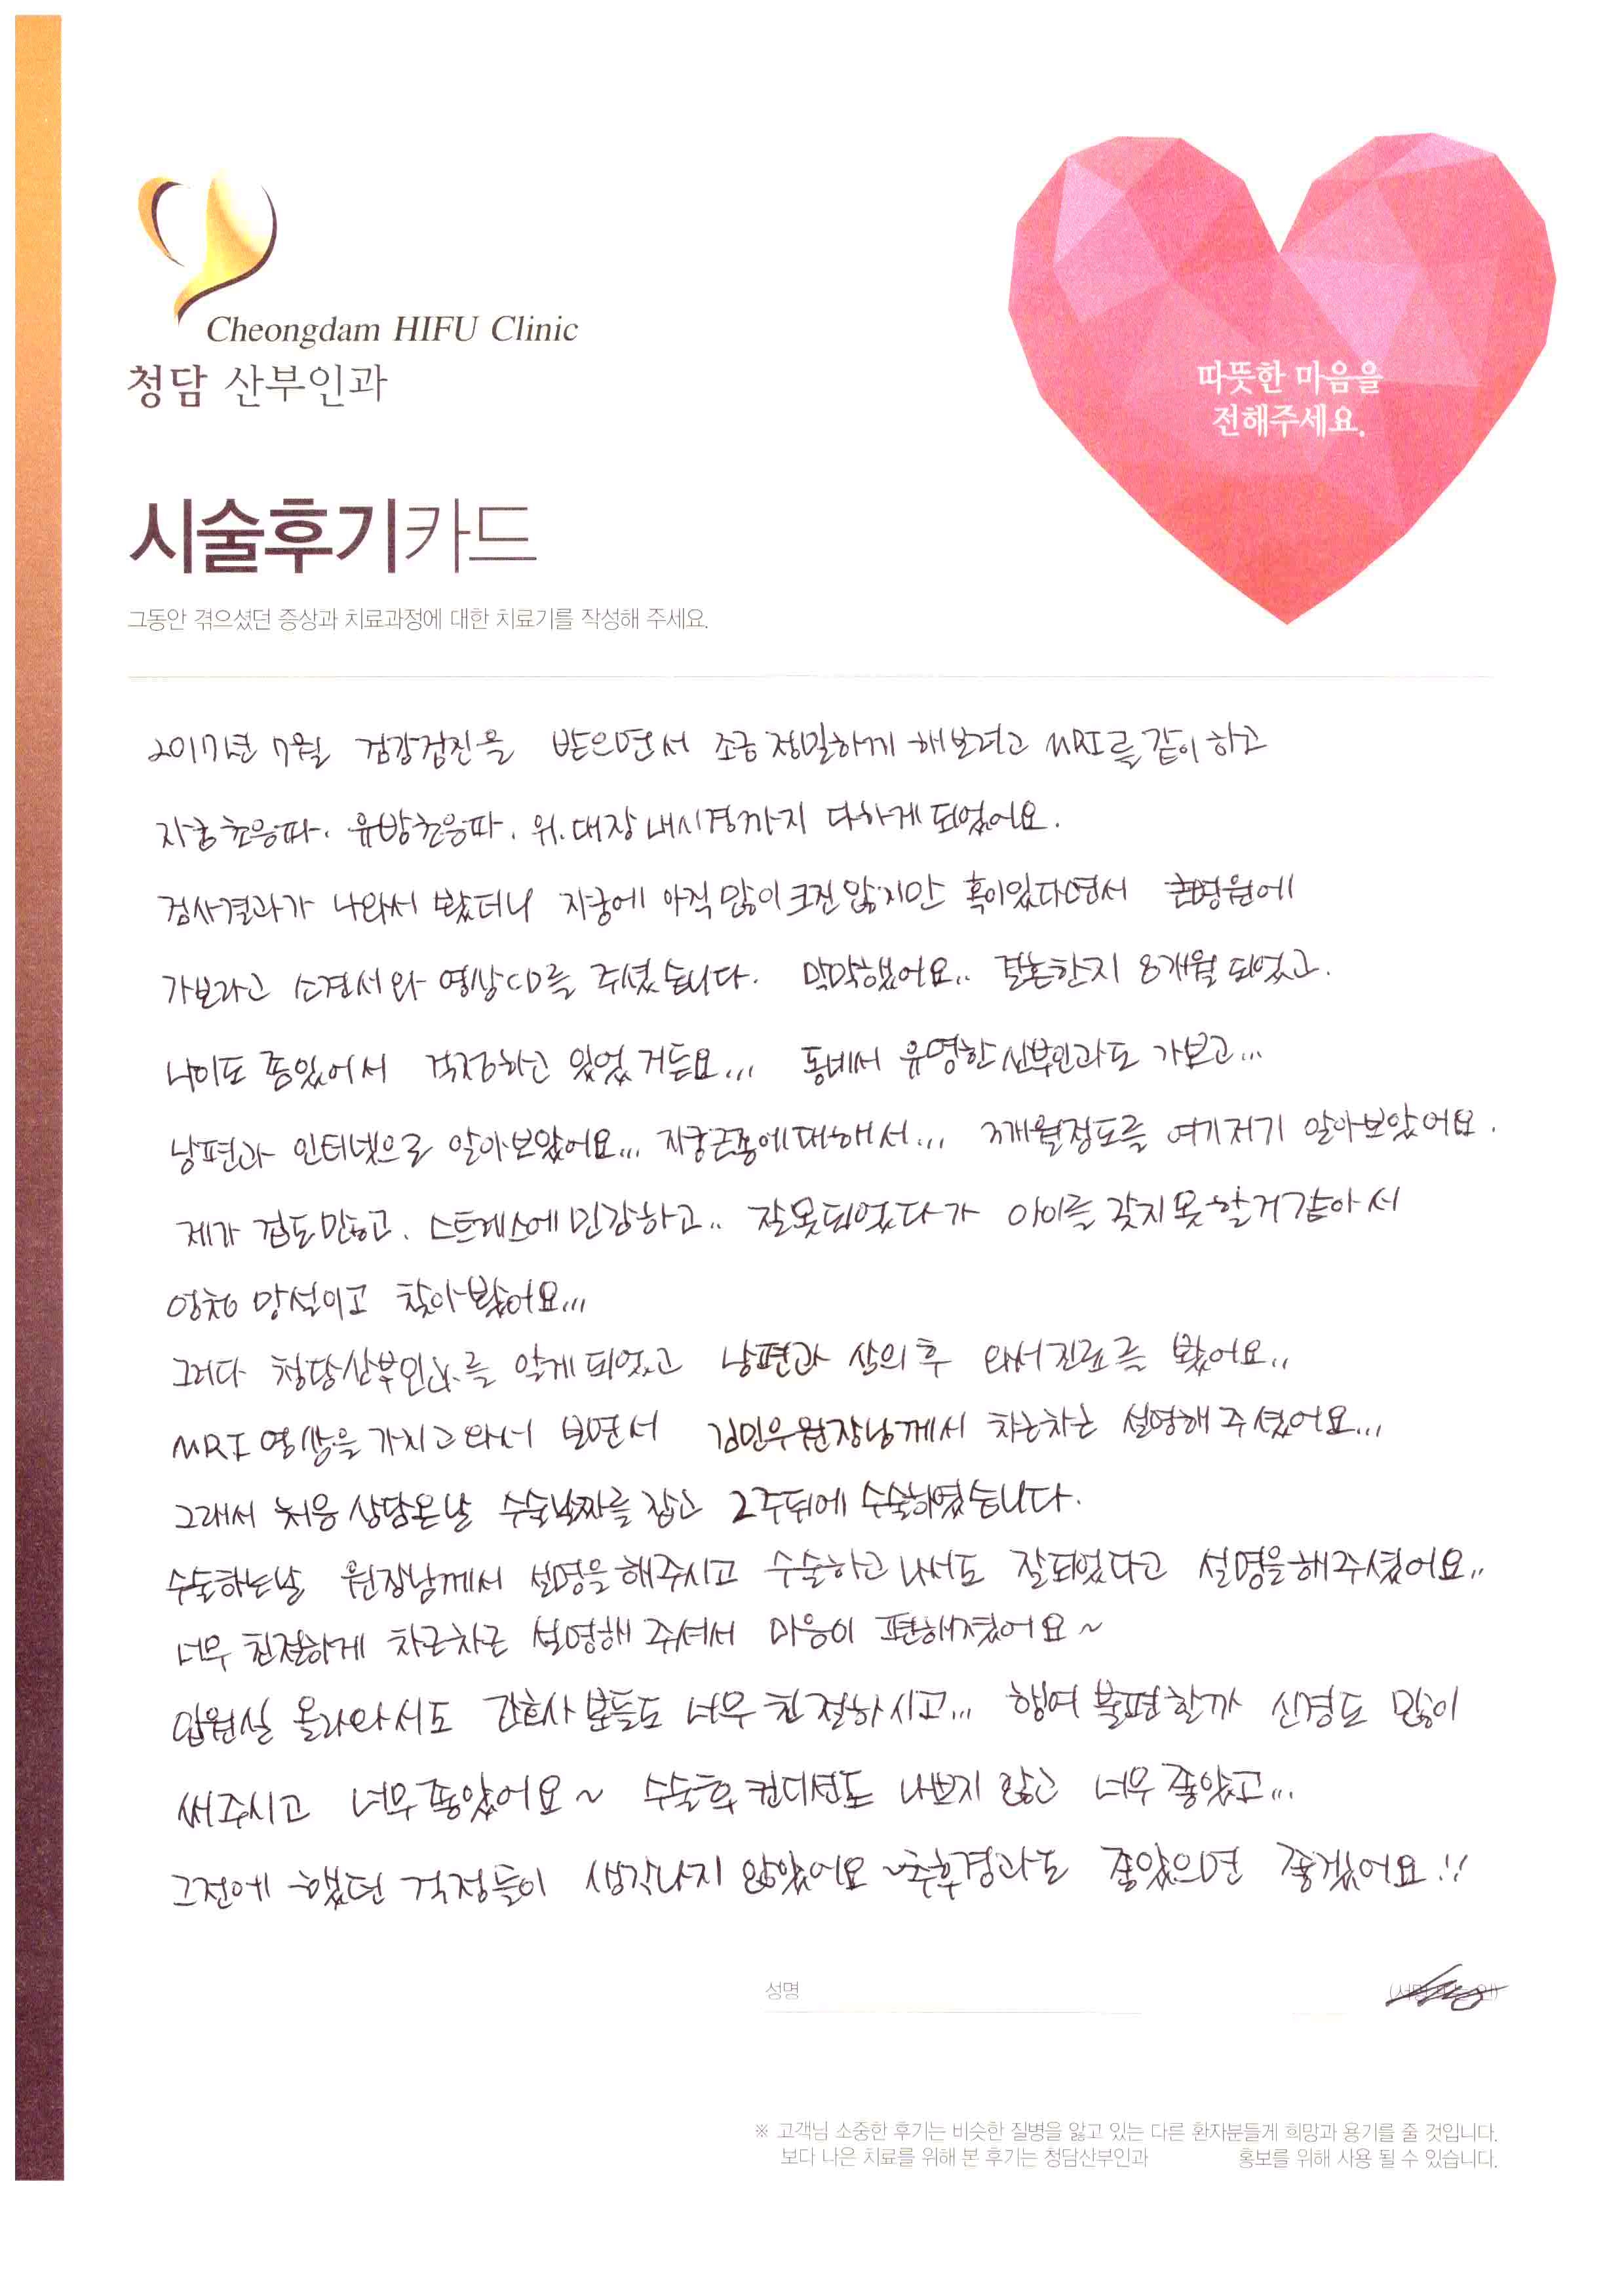 Cheongdam HIFU Clinic
청담 산부인과
따뜻한 마음을
전해주세요.
시술후기카드
그동안 겪으셨던 증상과 치료과정에 대한 치료기를 작성해 주세요.
2017년 7월 검강검진을 받으면서 조금 정밀하게 해보려고 MRI를 같이 하고
자궁초음파. 유방초음파. 위.대장 내시경까지 다하게 되었어요.
검사결과가 나와서 봤더니 자궁에 아직 많이 크진 않지만 혹이있다면서 큰병원에
가보라고 소견서와 영상CD를 주셨습니다. 막막했어요.. 결혼한지 8개월 되었고.
나이도 좀있어서 걱정하고 있었거든요... 동네서 유명한 산부인과도 가보고...
남편과 인터넷으로 알아보았어요... 자궁근종에대해서... 3개월정도를 여기저기 알아보았어요.
제가 겁도많고. 스트레스에 민감하고.. 잘못되었다가 아이를 갖지못할거같아서
엄청 망설이고 찾아봤어요...
그러다 청담산부인과를 알게되었고 남편과 상의후 와서진료를 봤어요..
MRI 영상을 가지고와서 보면서 김민우원장님께서 차근차근 설명해 주셨어요...
그래서 처음 상담온날 수술날짜를 잡고 2주뒤에 수술하였습니다.
수술하는날 원장님께서 설명을 해주시고 수술하고 나서도 잘되었다고 설명을해주셨어요..
너무 친절하게 차근차근 설명해 주셔서 마음이 편해졌어요~
입원실 올라와서도 간호사 분들도 너무 친절하시고... 행여 불편할까 신경도 많이
써주시고 너무좋았어요~ 수술후 컨디션도 나쁘지 않고 너무 좋았고...
그전에 했던 걱정들이 생각나지 않았어요~추후경과도 좋았으면 좋겠어요!!
성명
※ 고객님 소중한 후기는 비슷한 질병을 앓고 있는 다른 환자분들게 희망과 용기를 줄 것입니다.
보다 나은 치료를 위해 본 후기는 청담산부인과 홍보를 위해 사용 될 수 있습니다.